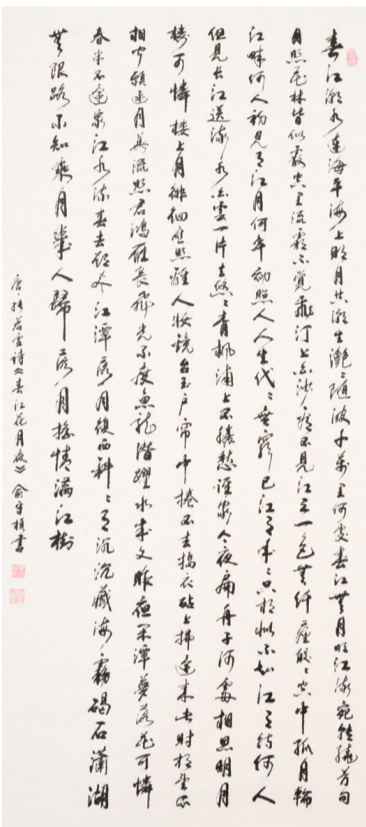 春江潮水連海平海上明月共潮生灔灔隨波千萬里何處春江無月明江流宛轉繞芳甸
月照花林皆似霰空里流霜不覺飛汀上白沙看不見江天一色無纖塵皎皎空中孤月輪
江畔何人初見月江月何年初照人人生代代無窮已江月年年只相似不知江月待何人
但見長江送流水白雲一片去悠悠青楓浦上不勝愁誰家今夜扁舟子何處相思明月
樓可憐樓上月徘徊應照離人妝鏡台玉戶帘中捲不去搗衣砧上拂還來此時相望不
相聞願逐月華流照君鴻雁長飛光不度魚龍潛躍水成文昨夜閑潭夢落花可憐
春半不還家江水流春去欲盡江潭落月復西斜斜月沉沉藏海霧碣石瀟湖
無限路不知乘月幾人歸落月搖情滿江樹
唐張若虛詩《春江花月夜》俞書